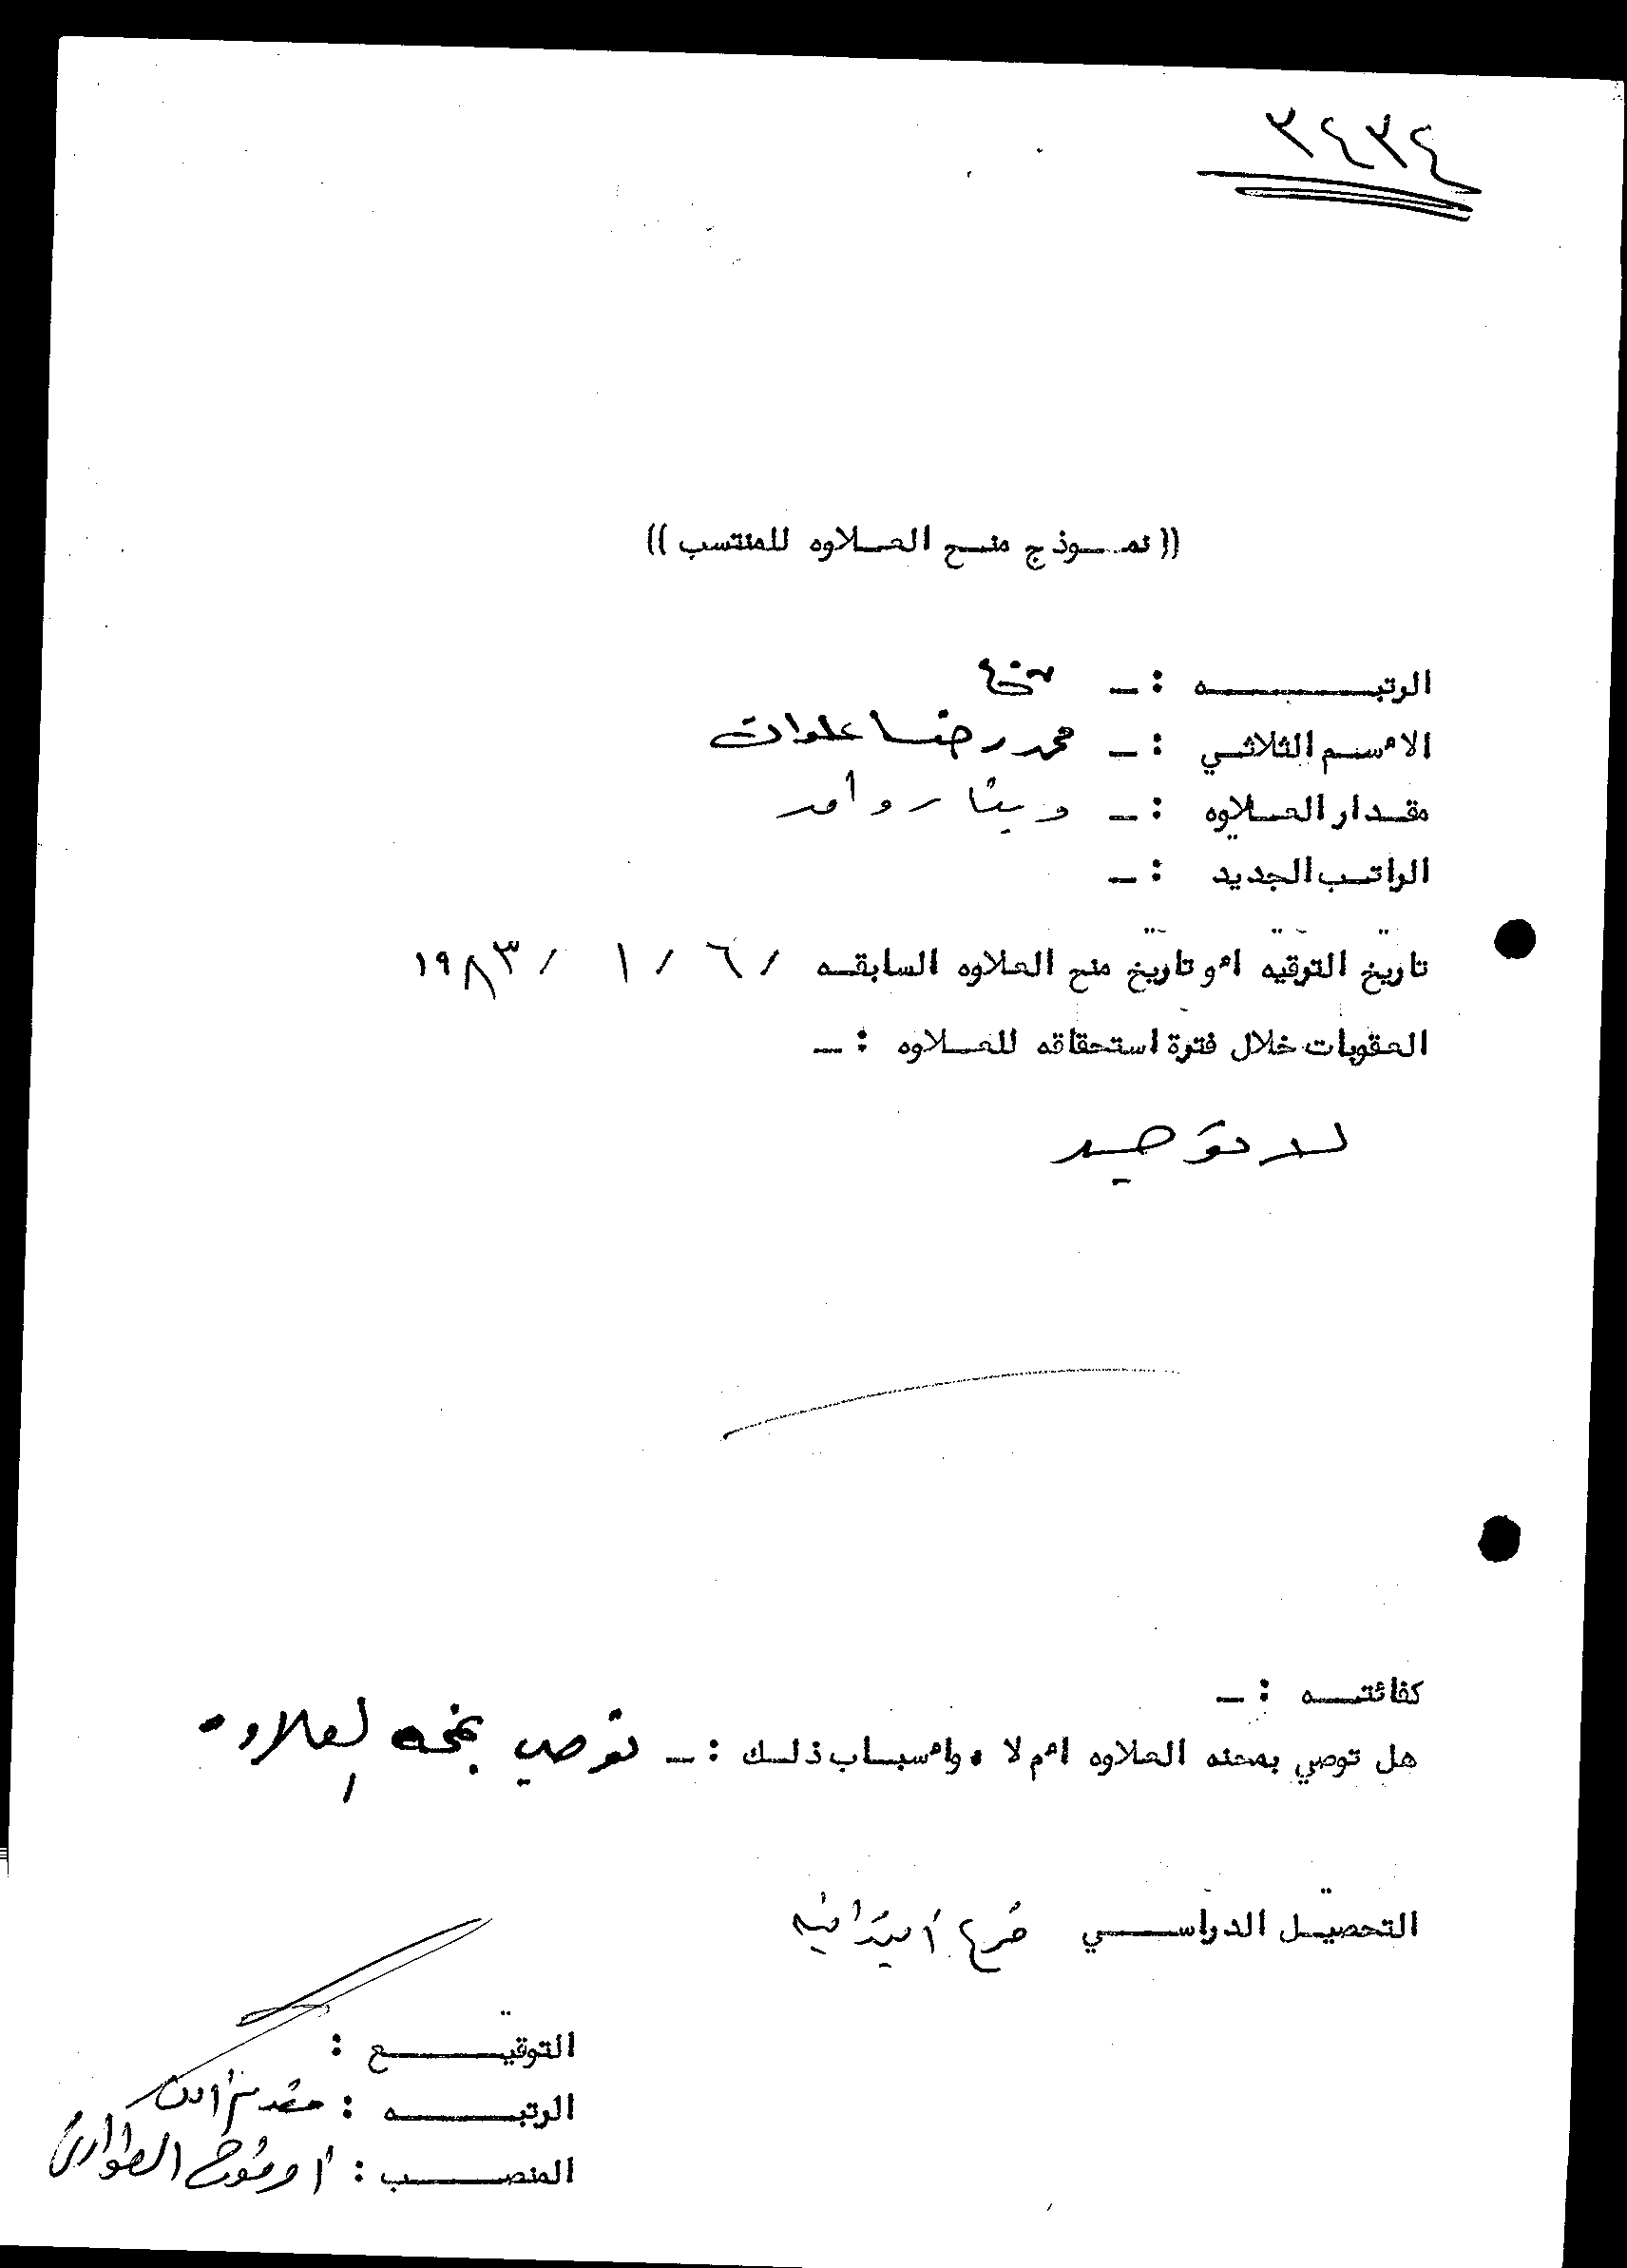 ٣٤٣٤
(( نمــوذج منــح العــلاوه للمنتسب ))
الرتبـــــــه : ـ
الاسـم الثلاثـي : ـ محمد رضا علوان
مقـدار العـلاوه : ـ دينار واحد
الراتـب الجديد : ـ
تاريخ الترقيه او تاريخ منح العلاوه السابقـه / ٦ / ١ / ١٩٨٣
العقوبات خلال فترة استحقاقه للعــلاوه : ـ
لا توجد
كفائتــه : ـ
هل توصي بمحنه العلاوه ام لا ٠ واسبـاب ذلـك : ـ نوصي بمنحه العلاوه
التحصيـل الدراســـي خريج ابتدائيه
التوقيــــــع :
الرتبــــــه : مقدم امن
المنصــــــب : الطوارئ